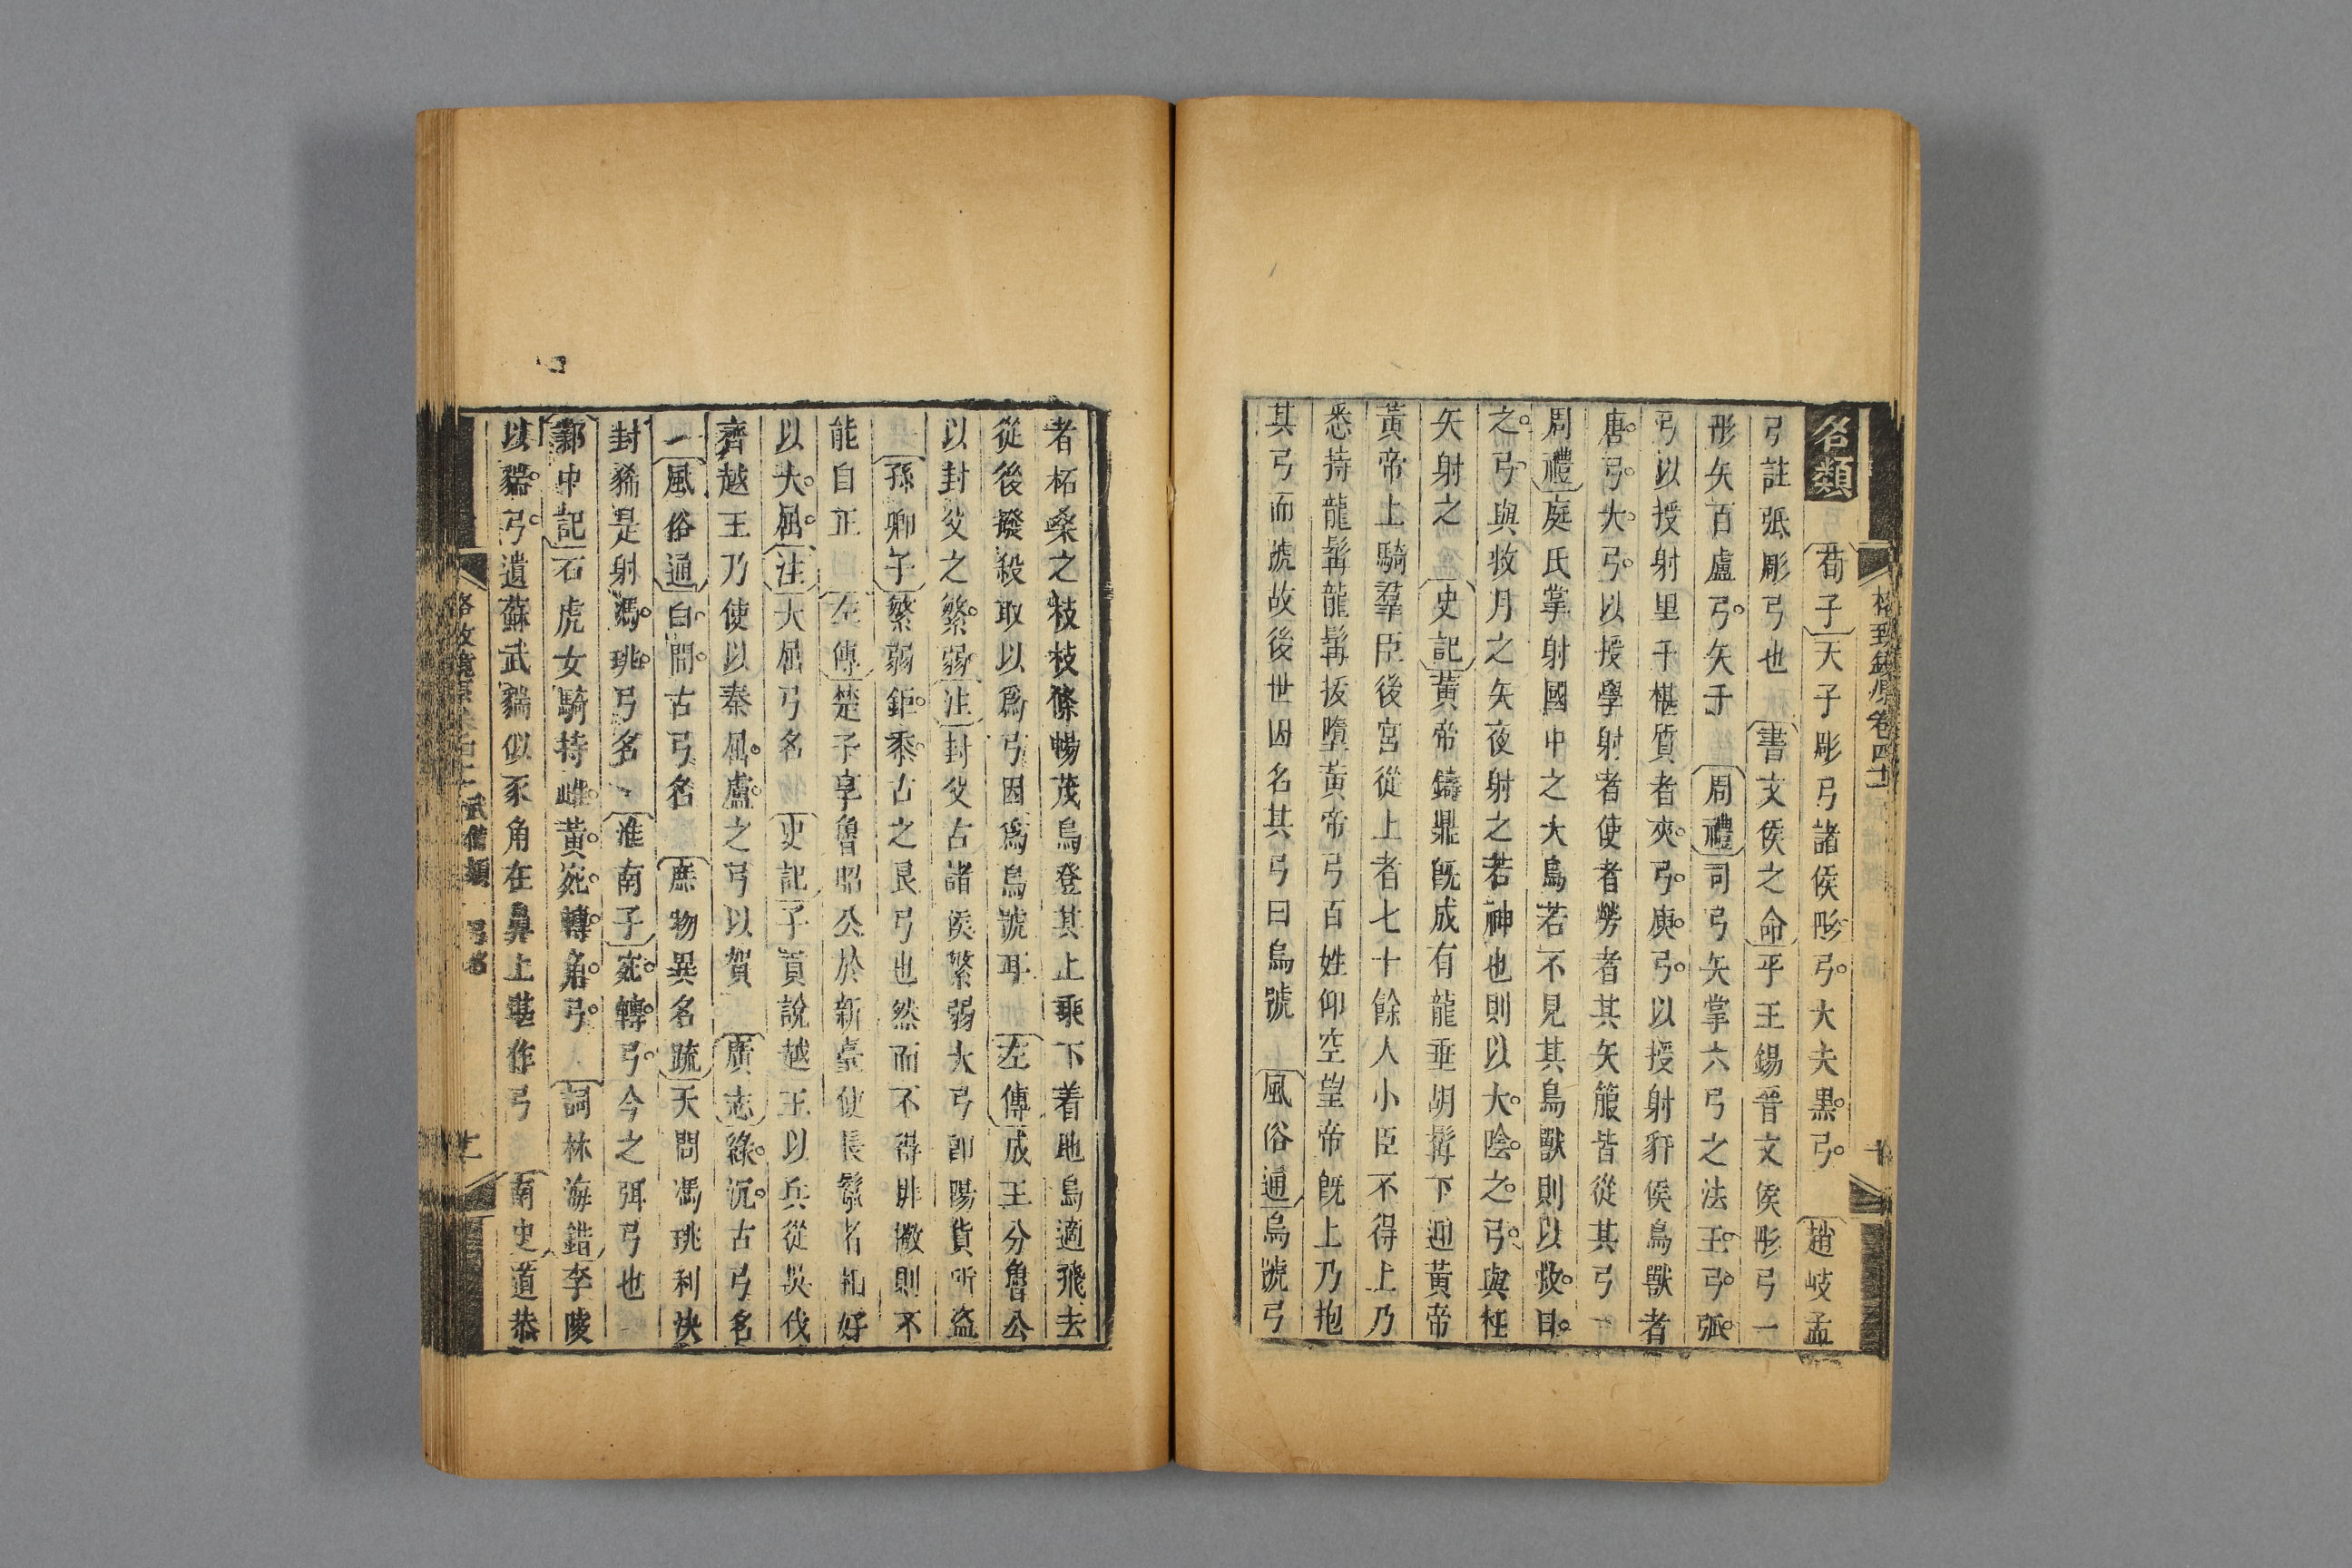 格致鏡原卷四十一
十
名類 荀子天子彫弓諸侯彤弓大夫黒弓 趙岐孟
弓註弤彫弓也 書文侯之命平王錫晋文侯彤弓一
彤矢百盧弓矢千 周禮司弓矢掌六弓之法王弓弧
弓以授射甲干椹質者夾弓庾弓以授射豻侯鳥獸者
唐弓大弓以授學射者使者勞者其矢箙皆從其弓
周禮庭氏掌射國中之夭鳥若不見其鳥獸則以救日
之弓與救月之矢夜射之若神也則以大陰之弓與枉
矢射之 史記黄帝鑄鼎既成有龍垂胡髯下迎黄帝
黄帝上騎羣臣後宮從上者七十餘人小臣不得上乃
悉持龍髯龍髯抜墮黄帝弓百姓仰空望帝既上乃抱
其弓而號故後世因名其弓曰烏號 風俗通烏號弓
者柘桑之枝枝條暢茂烏登其上乘下着地烏適飛去
從後撥殺取以爲弓因爲烏號耳 左傳成王分魯公
以封父之繁弱注封父古諸侯繁弱大弓卽陽貨所盜
孫卿子繁弱鉅黍古之良弓也然而不得排檠則不
能自正 左傳楚子享魯昭公於新臺使長鬛者相好
以大屈注大屈弓名 史記子貢説越王以兵從吳伐
齊越王乃使以秦屈盧之弓以賀 廣志綠沉古弓名
一風俗通白間古弓名 庶物異名疏天問馮珧利决
封豨是射馮珧弓名 淮南子宛轉弓今之弭弓也
鄴中記石虎女騎持雌黄宛轉角弓 詞林海錯李陵
以貒弓遺蘇武貒似豕角在鼻上堪作弓 南史道恭
格致鏡原卷四十一 武備類 弓名
十一